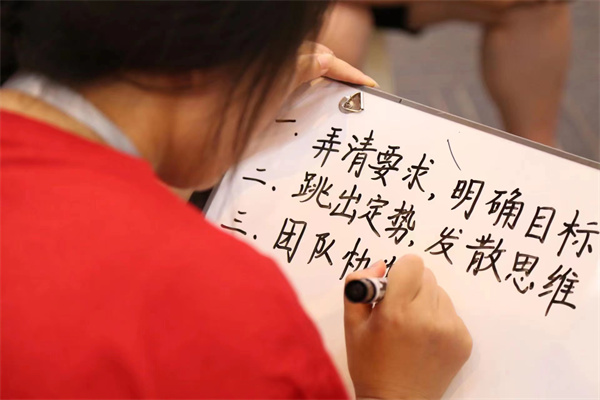 一. 弄清要求,明确目标
二. 跳出定势,发散思维
三. 团队